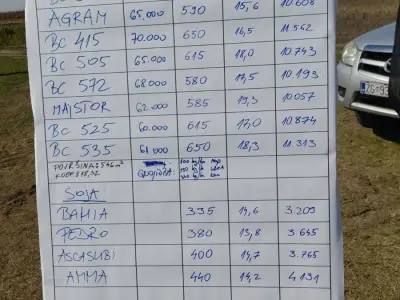 AGRAM 65.000 590 15,6 10.608
BC 415 70.000 650 16,5 11.562
BC 505 65.000 615 18,0 10.743
BC 572 68000 580 17,5 10.193
MAJSTOR 62000 585 19,3 10057
BC 525 60.000 615 17,0 10.874
BC 535 61000 650 18,3 11.313
SOJA
BAHIA 335 14,6 3.209
PEDRO 380 13,8 3.645
ASCASUBI 400 14,7 3.765
AMMA 440 14,2 4.131
ZG